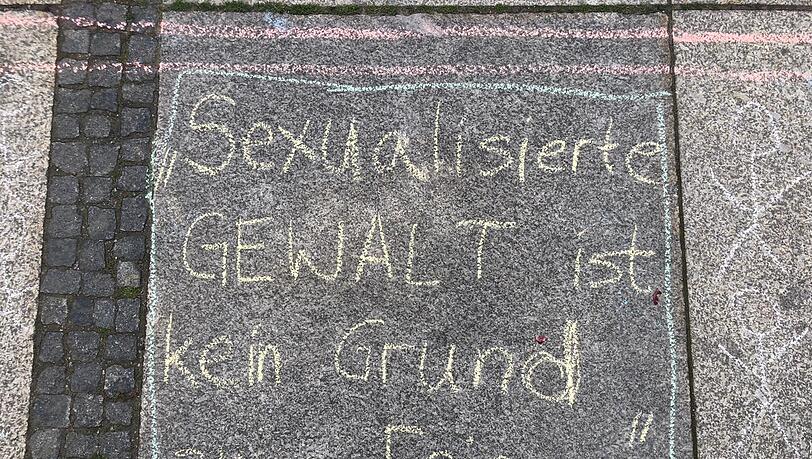 „Sexualisierte
GEWALT ist
kein Grund
"